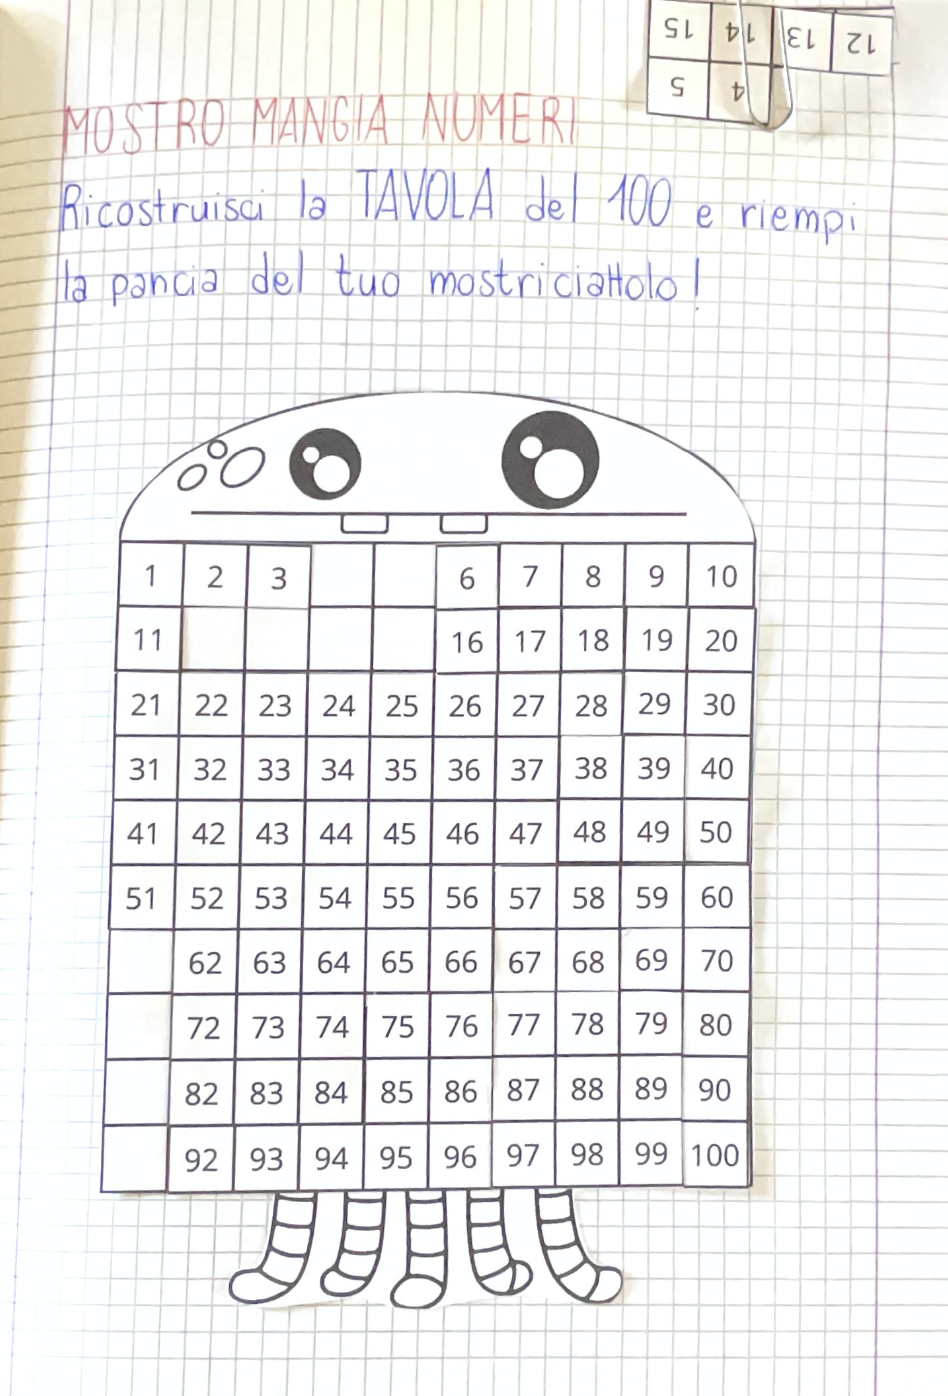 15 14 13 12
5 4
MOSTRO MANGIA NUMERI
Ricostruisci la TAVOLA del 100 e riempi
la pancia del tuo mostriciattolo!
1 2 3 6 7 8 9 10
11 16 17 18 19 20
21 22 23 24 25 26 27 28 29 30
31 32 33 34 35 36 37 38 39 40
41 42 43 44 45 46 47 48 49 50
51 52 53 54 55 56 57 58 59 60
62 63 64 65 66 67 68 69 70
72 73 74 75 76 77 78 79 80
82 83 84 85 86 87 88 89 90
92 93 94 95 96 97 98 99 100